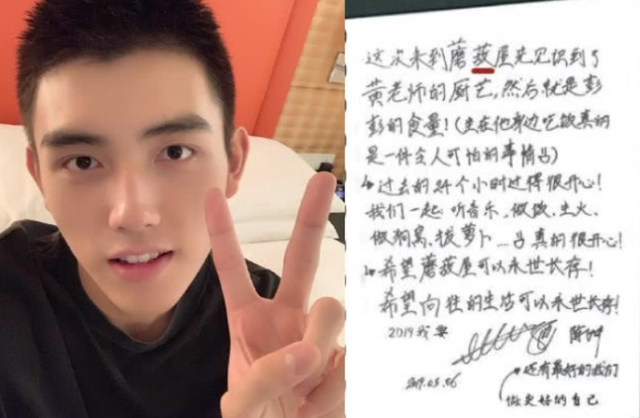 这次来到蘑菇屋先见识到了
黄老师的厨艺,然后就是彭
彭的食量!(坐在他身边吃饭真的
是一件令人可怕的事情)
过去的24个小时过得很开心!
我们一起:听音乐、做饭、生火、
做狗窝、拔萝卜...真的很开心!
希望蘑菇屋可以永世长存!
希望向往的生活可以永世长存!
2019我要
还有最好的我们
做更好的自己